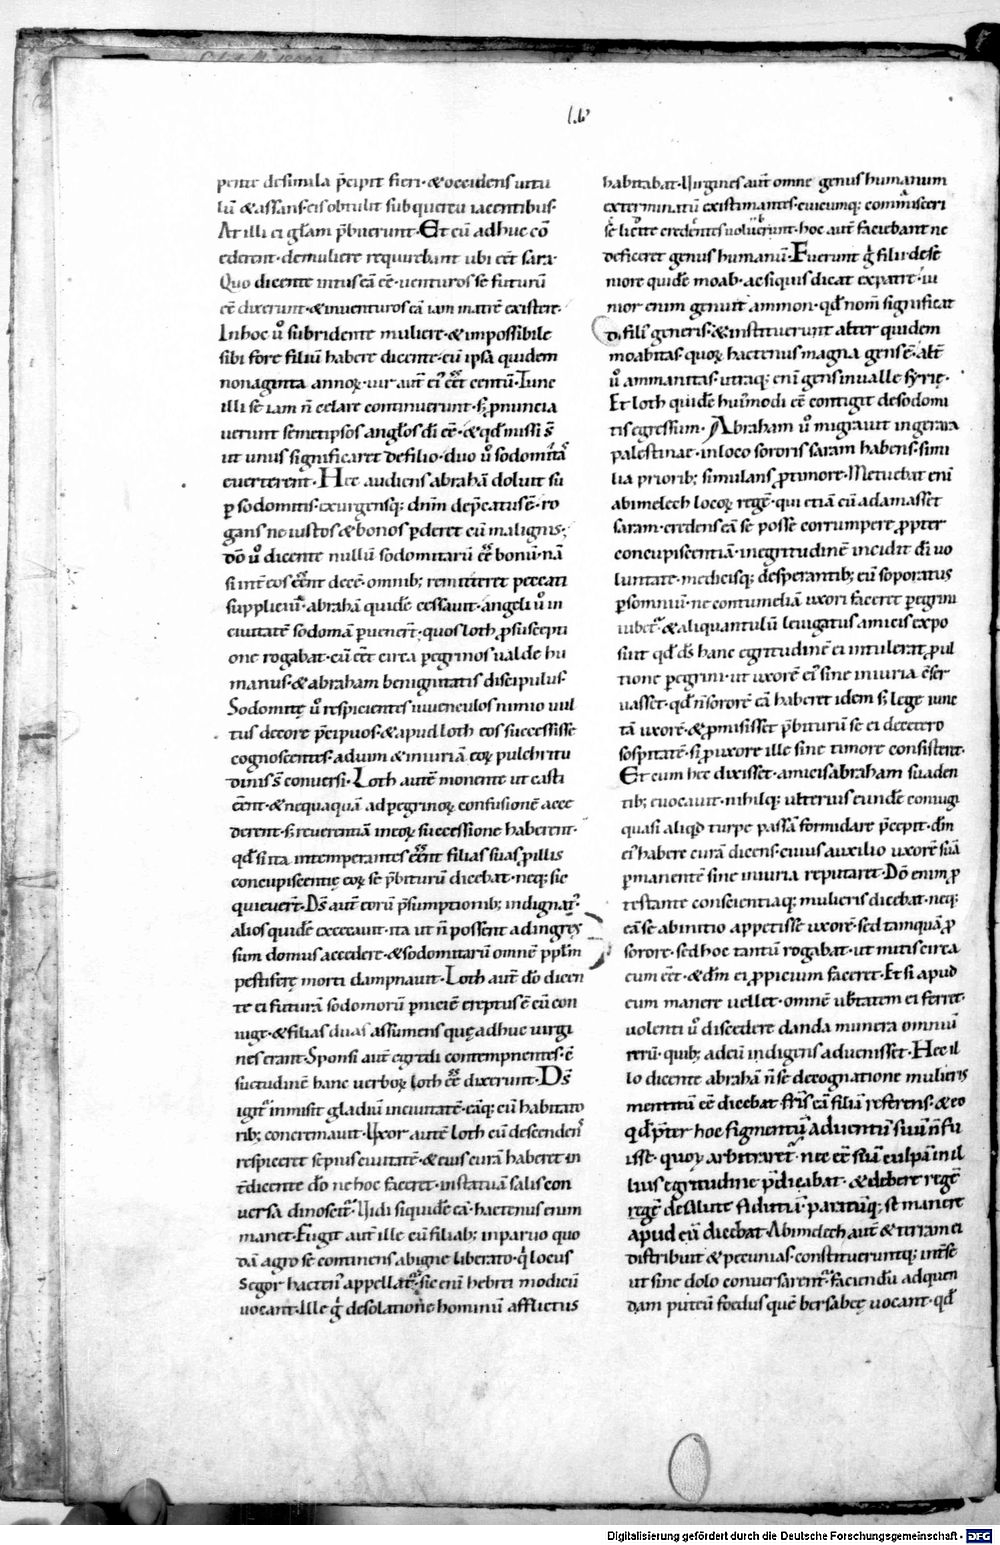 li. li⁹
pente desimila p̄cipit fieri·&occidens uitu
lū &assans·eis obtulit sub quercu iacentibus·
At illi ei gl̄am p̄buerunt·Et cū adhuc cō
ederent·demuliere requirebant ubi cēt sara·
Quo dicente intus eā cē·uenturos se futurū
cē dixerunt·&inuenturos eā iam matrē existere·
Inhoc u͛o subridente muliere·&impossibile
sibi fore filiū habere dicente·cū ipsa quidem
nonaginta annoꝝ·uir aut̄ ei⁹ cēt centū·Tunc
illi se iam n̄ celare continuerunt·sꝫ ꝓnuncia
uerunt semetipsos angl̄os dī cē·&qd̄ missi s̄
ut unus significaret defilio·duo u͛o sodomitā
euerterent·Hec audiens abrahā doluit sup
ꝑ sodomitis·exurgensq; dn̄m dep̄catus ē·ro
gans ne iustos &bonos ꝑderet cū malignis;
Dō u͛o dicente nullū sodomitarū cē bonū·nā
si int̄ eos cēnt decē·omnib; remitteret peccati
suppliciū·abrahā quidē cessauit·angeli u͛o in
ciuitatē sodomā ꝑuener̄t·quos loth ꝓ suscepti
one rogabat·cū cēt circa ꝑegrinos ualde hu
manus·&abraham benignitatis discipulus·
Sodomitę u͛o respicientes iuuenculos nimio uul
tus decore p̄cipuos·&apud loth eos successisse
cognoscentes·aduim &iniuriā eoꝝ pulchritu
dinis s̄ conuersi·Loth autē monente ut casti
cēnt·&nequaquā adꝑegrinoꝝ confusionē acce
derent·sꝫ reuerentiā ineoꝝ successione haberent·
qd̄ si ita intemperantes cēnt filias suas ꝓ illis
concupiscentię eoꝝ se p̄biturū dicebat·neq; sic
quieuer̄t·Ds̄ aut̄ eorū p̄sumptionib; indignat⁹·
alios quidē excecauit·ita ut n̄ possent adingres
sum domus accedere·&sodomitarū omnē ppl̄m
pestiferę morti dampnauit·Loth aut̄ dō dicen
te ei futurā sodomorū ꝑniciē ereptus ē cū con
iuge·&filias duas assumens quę adhuc uirgi
nes erant·Sponsi aut̄ egredi contempnentes·ē
suetudinē hanc uerboꝝ loth cē dixerunt·Ds̄
igit͛ inmisit gladiū inciuitatē·eāq; cū habitato
rib; concremauit·Uxor autē loth cū descenden͛
respiceret sępius ciuitatē·&eius curā haberet in
t̄dicente dō ne hoc faceret·instatuā salis con
uersa dinoscit͛·Uidi siquidē eā·hactenus enim
manet·Fugit aut̄ ille cū filiab; inparuo quo
dā agro se continens abigne liberato·q͛ locus
segor hacten⁹ appellat͛·sic enī hebrei modicū
uocant·Ille g͛ desolatione hominū afflictus
habitabat·Uirgines aut̄ omne genus humanum
exterminatū existimantes·cuicumq; commisceri
se licere credentes uoluerunt·hoc aut̄ faciebant ne
deficeret genus humanū·Fuerunt g͛ filii·de se
niore quidē moab·ac siquis dicat expatre·iu
nior enim genuit ammon·qd̄ nom̄ significat
filī generis·&instituerunt alter quidem
moabitas·quoꝝ hactenus magna gens ē·alt̄
u͛o ammanitas·utraq; enī gens inualle syrię·
Et loth quidē hui⁹modi cē contigit desodomi
tis egressum·Abraham u͛o migrauit ingerara
palestinae·inloco sororis saram habens·simi
lia priorib; simulans ꝓ timore·Metuebat enī
abimelech locoꝝ regē·qui etiā cū adamasset
saram·credens eā se posse corrumpere ꝓpter
concupiscentiā·inegritudinē incidit dī uo
luntate·medicisq; desperantib; cū soporatus
ꝑ somniū·ne contumeliā uxori faceret ꝑegrini
iubet͛·&aliquantulū leuigatus amicis expo
suit qd̄ ds̄ hanc egritudinē ei intulerat ꝓ ul
tione ꝑegrini·ut uxorē ei⁹ sine iniuria c̄ser
uasset·qd̄ n̄ sororē eā haberet idem sꝫ lege iunc
tā uxorē·&ꝓmisisset p̄biturū se ei decetero
sospitatē·si ꝓ uxore ille sine timore consisteret·
Et cum hec dixisset·amicis abraham suaden
tib; euocauit·nihilq; ulterius eundē coniugi
quasi aliqd̄ turpe passā formidare p̄cepit·dm̄
ei⁹ habere curā dicens·cuius auxilio uxorē suā
ꝑmanentē sine iniuria reputaret·Dō enim ꝓ
testante conscientiaq; mulieris dicebat·neq;
eā se abinitio appetisse uxorē·sed tamquā ꝓ
sorore·sed hoc tantū rogabat·ut mitis circa
eum cēt·&dm̄ ei ꝓpicium faceret·Et si apud
eum manere uellet·omnē ubertatem ei ferret·
uolenti u͛o discedere danda munera omniū
rerū·quib; adeū indigens aduenisset·Hec il
lo dicente abrahā n̄ se decognatione mulieris
mentitū cē dicebat·fr̄is eā filiā referens·&eo
qd̄ p̄ter hoc figmentū aduentū suū n̄ fu
isse·quoꝝ arbitraret͛·nec cē suā culpā in il
lius egritudine p̄dicabat·&debere regē
regē desalute fiduciā·paratūq; se manere
apud eū dicebat·Abimelech aut̄ &terram ei
distribuit &pecunias·constitueruntq; int̄ se
ut sine dolo conuersarent͛·faciendū adquen
dam puteū foedus quē bersabeę uocant·qd̄
Digitalisierung gefördert durch die Deutsche Forschungsgemeinschaft - DFG